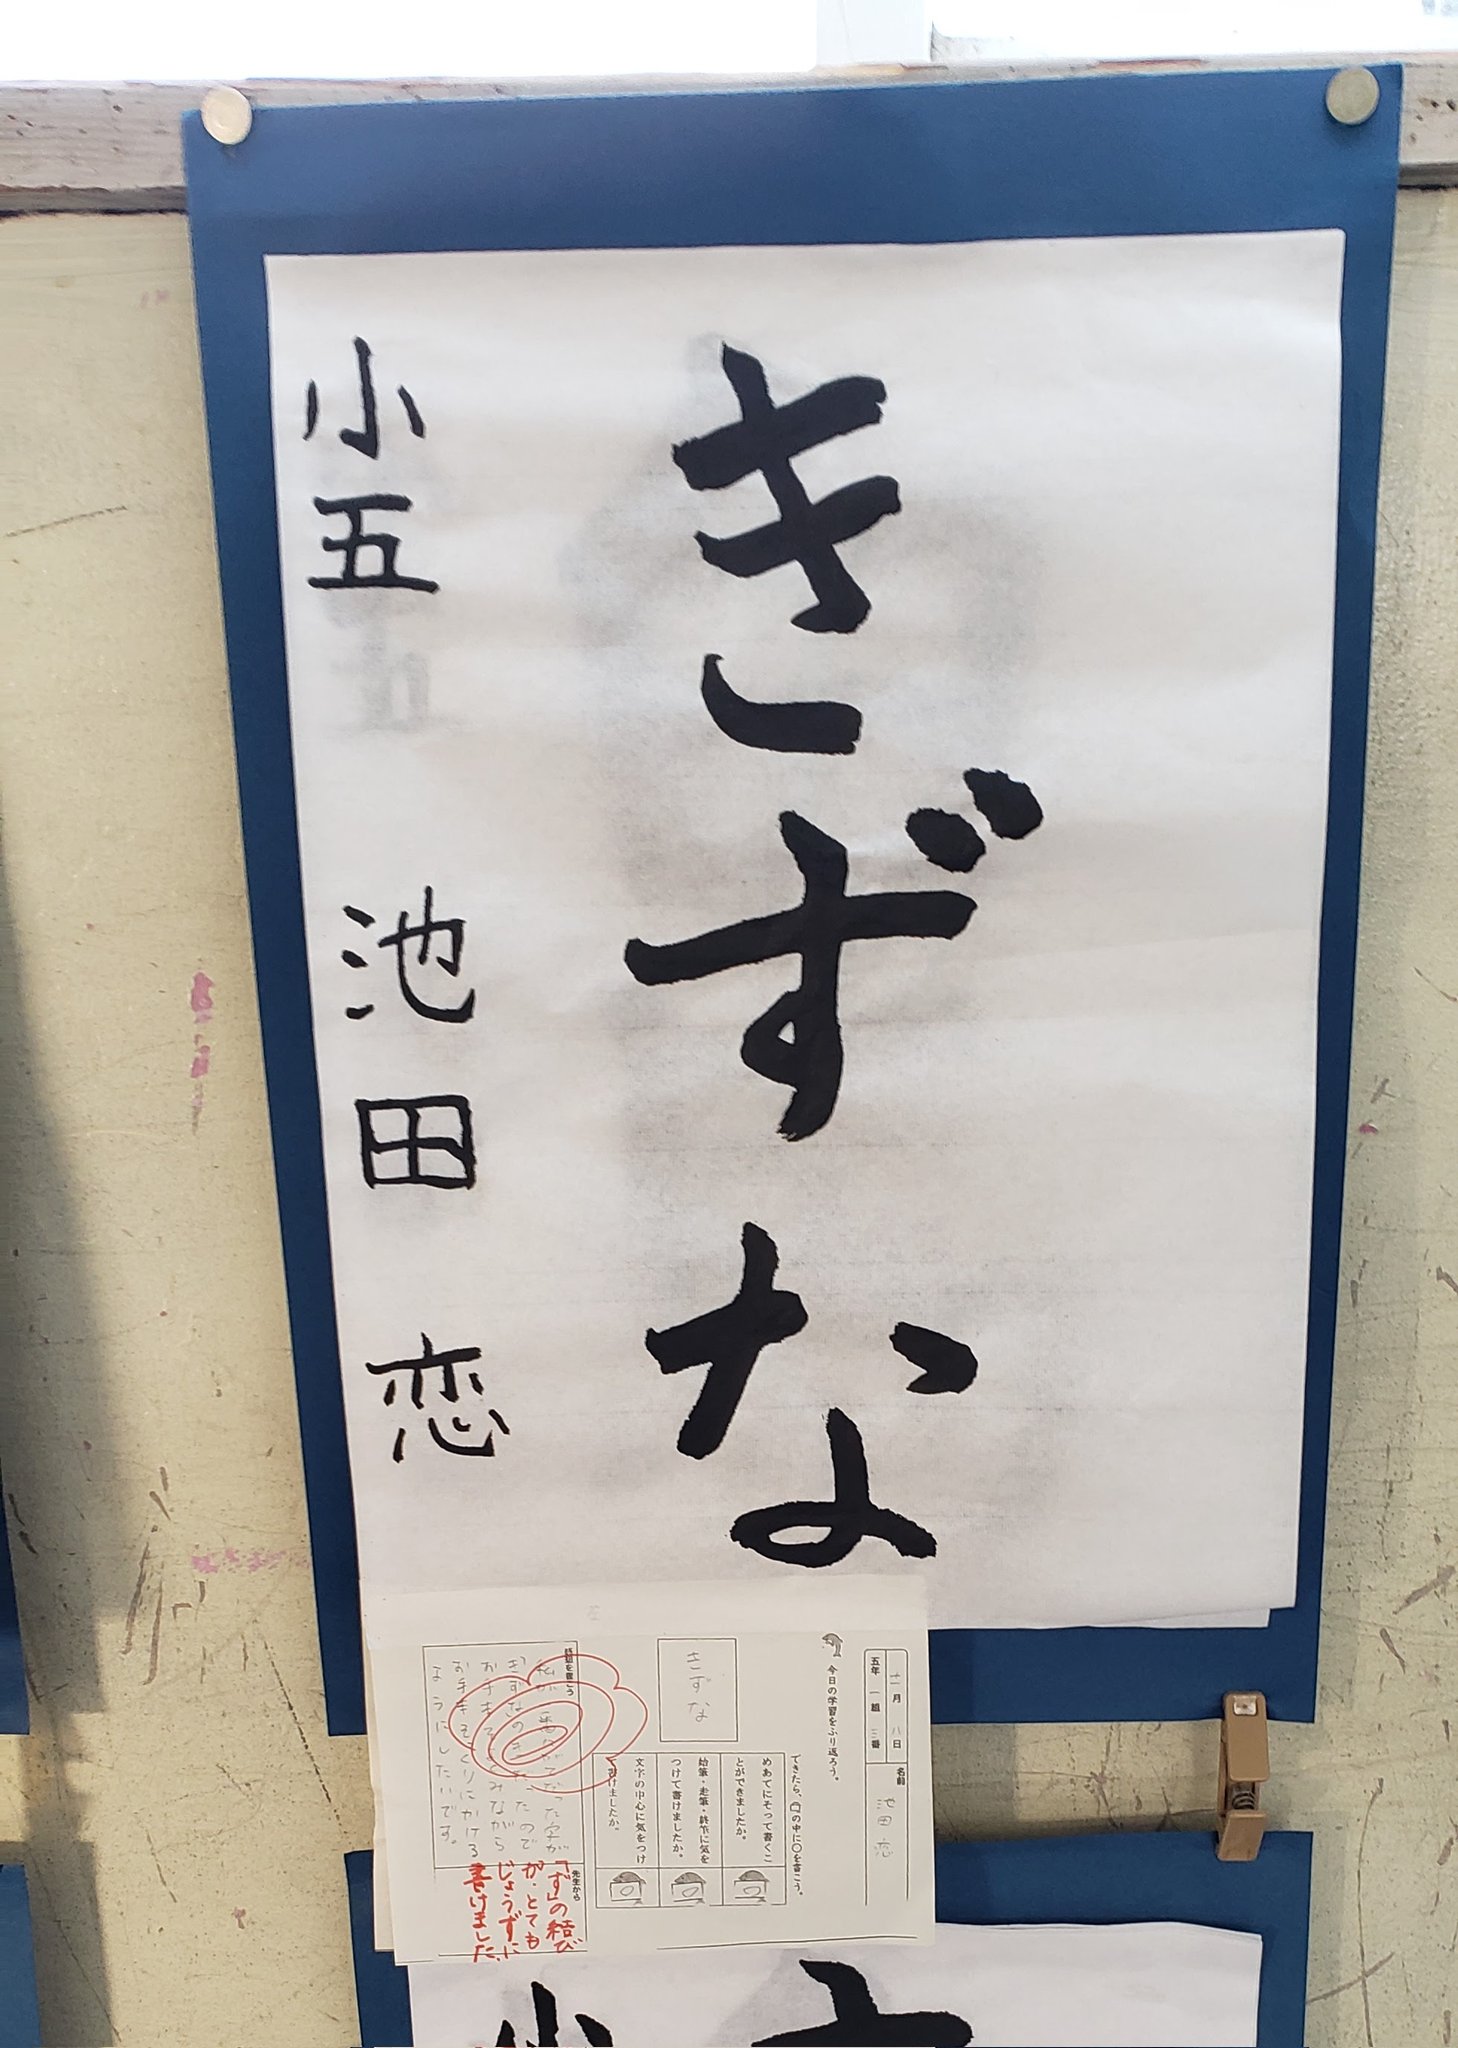 きずな
小五 池田 恋
五年 一組 三番
十一月 八日
名前 池田 恋
今日の学習をふり返ろう。
きずな
できたら、の中に○を書こう。
めあてにそって書くことができましたか。
始筆・走筆・終筆に気をつけて書けましたか。
文字の中心に気をつけ
書けましたか。
私が一番
きずなのき
たので
お手本
みながら
お手本そっくりにかける
ようにしたいです。
先生から
「ず」の結び
が、とても
じょうずに
書けました。